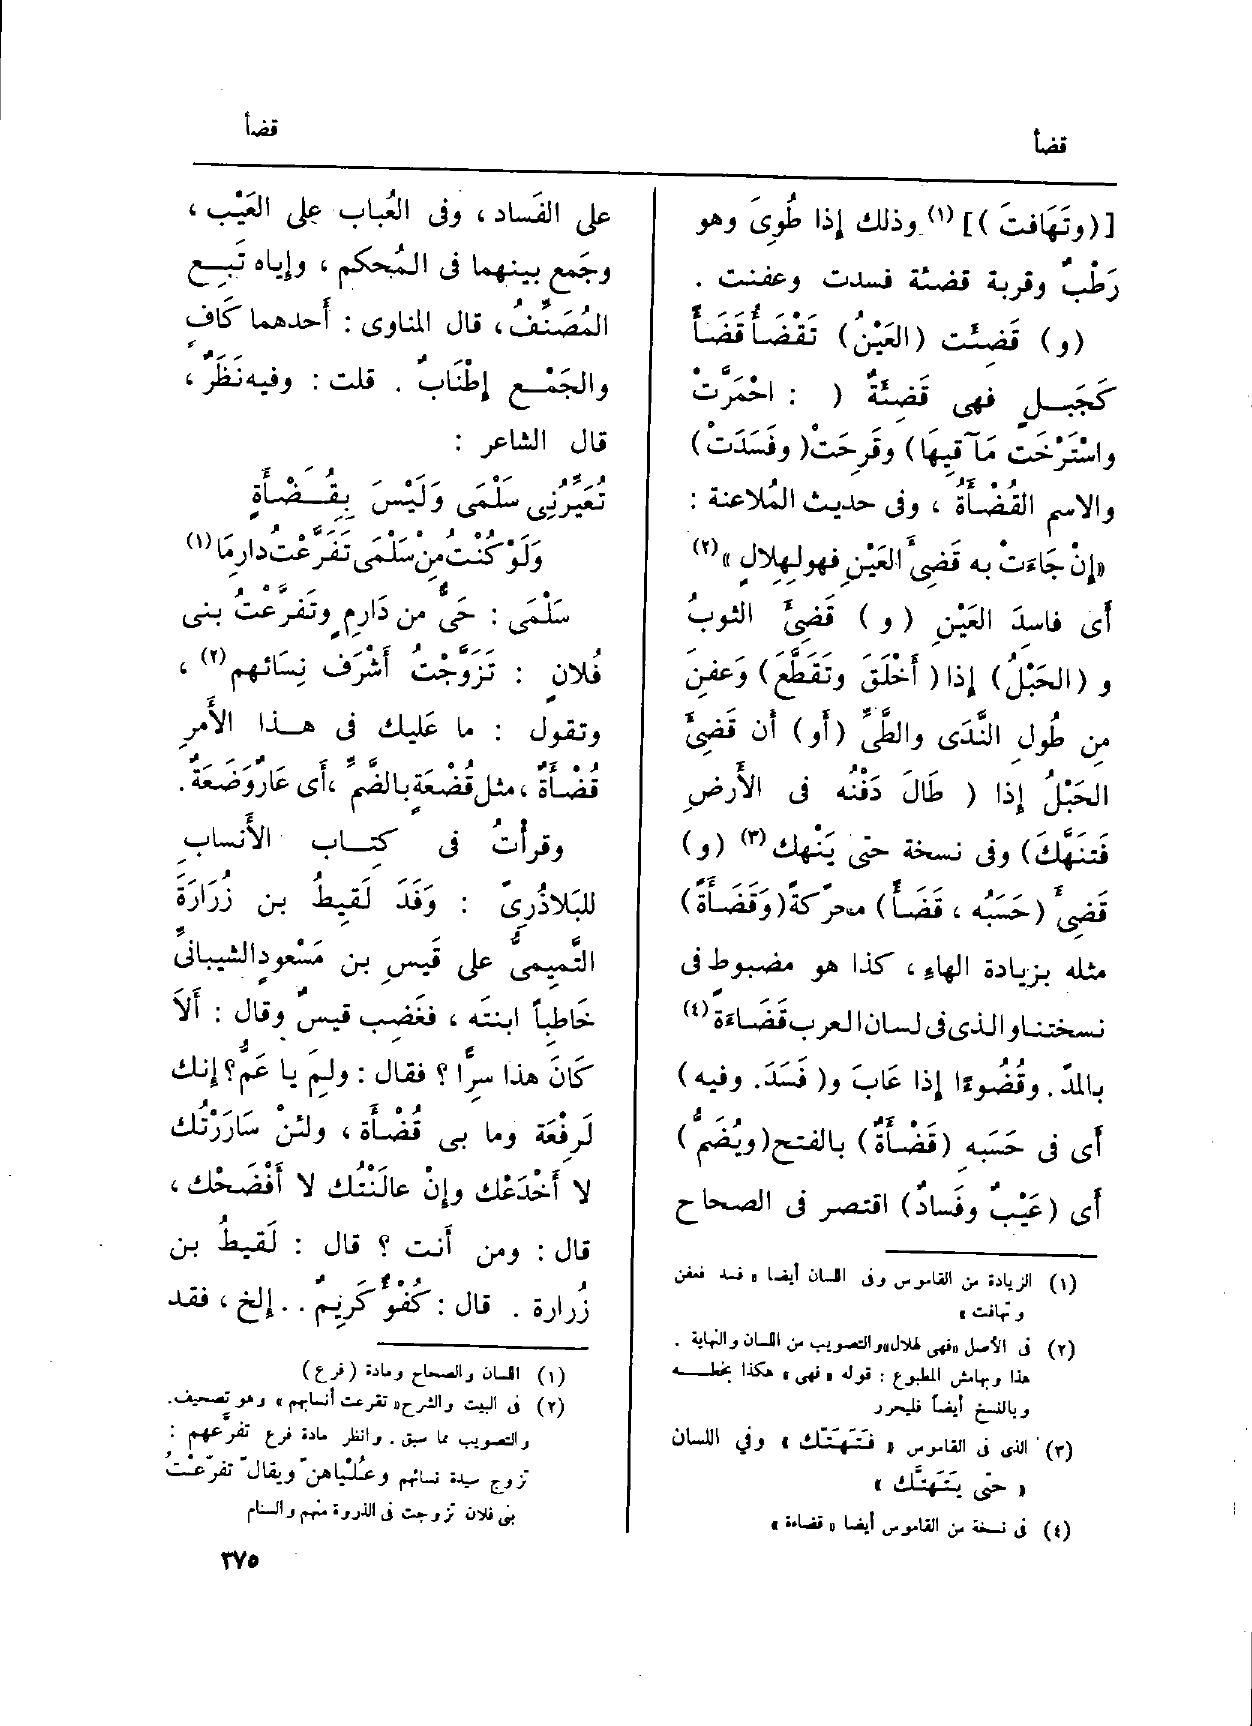 قضأ
قضأ
[(وتَهَافتَ)] (١) وذلك إذا طُوِىَ وهو
رَطْبٌ وقربة قضئة فسدت وعفنت .
(و) قَضِئَت (العَيْنُ) تَقْضَأُ قَضَأً
كَجَبَلٍ فهى قَضِئَةٌ ( : احْمَرَّتْ
واسْتَرْخَت مَآقِيهَا) وقَرِحَتْ (وفَسَدَتْ)
والاسم القُضْأَةُ ، وفى حديث المُلاعنة :
«إنْ جَاءَتْ به قَضِىءَ العَيْنِ فهو لِهِلالٍ » (٢)
أى فاسِدَ العَيْنِ (و) قَضِئَ الثوبُ
و (الحَبْلُ) إذا (أَخْلَقَ وتَقَطَّعَ) وَعفِنَ
مِن طُولِ النَّدَى والطَّىِّ (أو) أن قَضِئَ
الحَبْلُ إذا ( طَالَ دَفْنُه فى الأَرضِ
فَتنَهَّكَ) وفى نسخة حتى يَنْهك (٣) (و)
قَضِىءَ (حَسَبُه ، قَضَأً) محرّكةً (وَقَضَأَةً)
مثله بزيادة الهاءِ ، كذا هو مضبوط فى
نسختنا والذى فى لسان العرب قَضَاءَةً (٤)
بالمدّ . وقُضُوءًا إذا عَابَ و( فَسَدَ. وفيه )
أى فى حَسَبِهِ (قَضْأَةٌ) بالفتح (ويُضَمُّ)
أى (عَيْبٌ وفَسادٌ) اقتصر فى الصحاح
(١) الزيادة من القاموس وفى اللسان أيضا « فسد فعفن
وتهافت »
(٢) فى الأصل «فهى لهلال» والتصويب من اللسان والنهاية .
هذا وبهامش المطبوع : قوله « فهى » هكذا بخطـــه
وبالنسخ أيضاً فليحرر
(٣) الذى فى القاموس « فَتَهَتّك » وفي اللسان
« حتى يَتَهتَّك »
(٤) فى نسخة من القاموس أيضا « قضاءة »
على الفَساد ، وفى العُباب على العَيْب ،
وجَمع بينهما فى المُحكم ، وإياه تَبِع
المُصَنِّفُ ، قال المناوى : أَحدهما كَافٍ
والجَمْع إِطْنَابٌ . قلت : وفيه نَظَرٌ ،
قال الشاعر :
تُعَيِّرُنِى سَلْمَى وَلَيْسَ بِقُضْأَةٍ
وَلَوْ كُنْتُ مِنْ سَلْمَى تَفَرَّعْتُ دارِمَا (١)
سَلْمَى : حَىٌّ من دَارِمٍ وتَفرَّعْتُ بنى
فُلانٍ : تَزَوَّجْتُ أَشْرَف نِسَائهم (٢) ،
وتقول : ما عَليك فى هـــذا الأَمرِ
قُضْأَةٌ ، مثل قُضْعَةٍ بالضَّمِّ ، أَى عَارٌ وَضَعَةٌ .
وقرأتُ فى كِتــاب الأَنسابِ
للبَلاذُرِىِّ : وَفَدَ لَقيطُ بن زُرَارَةَ
التَّميمىُّ على قَيسِ بن مَسْعودٍ الشيبانىِّ
خَاطِباً ابنتَه ، فغَضِب قيسٌ وقال : أَلاَ
كَانَ هذا سِرًّا ؟ فقال : ولِمَ يا عَمُّ ؟ إنك
لَرِفْعَة وما بى قُضْأَة ، ولئنْ سَارَرْتُك
لا أَخْدَعْك وإنْ عالَنْتُك لا أَفْضَحْك ،
قال : ومن أَنت ؟ قال : لَقيطُ بن
زُرارة . قال : كُفْؤٌ كَرِيمٌ . . إلخ ، فقد
(١) اللسان والصحاح ومادة (فرع)
(٢) فى البيت والشرح «تقرعت أنسابهم » وهو تصحيف .
والتصويب مما سبق . وانظر مادة فرع تفرّعهم :
تزوج سيدة نسائهم وعُلْياهنّ ويقال تفرّعْتُ
بنى فلان تزوجت فى الذروة منهم والسنام
٣٧٥